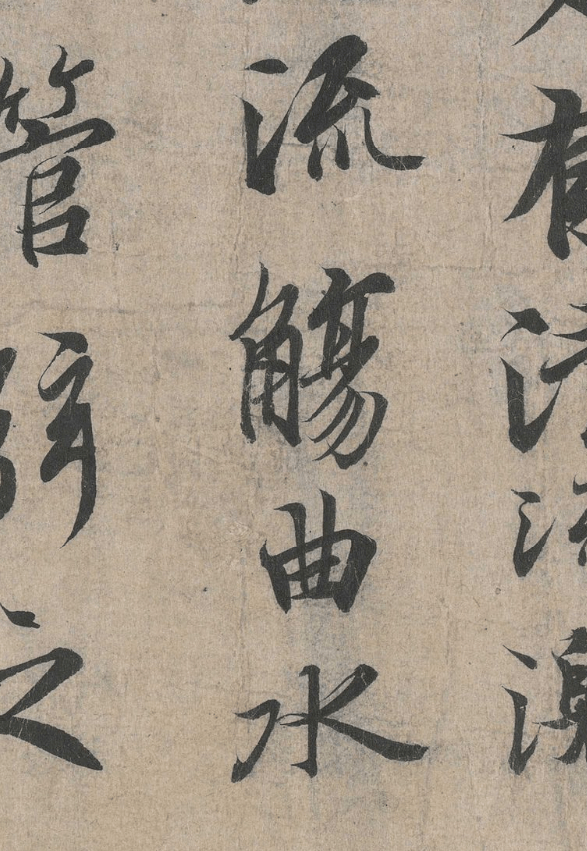 有清流激
流觴曲水
管弦之